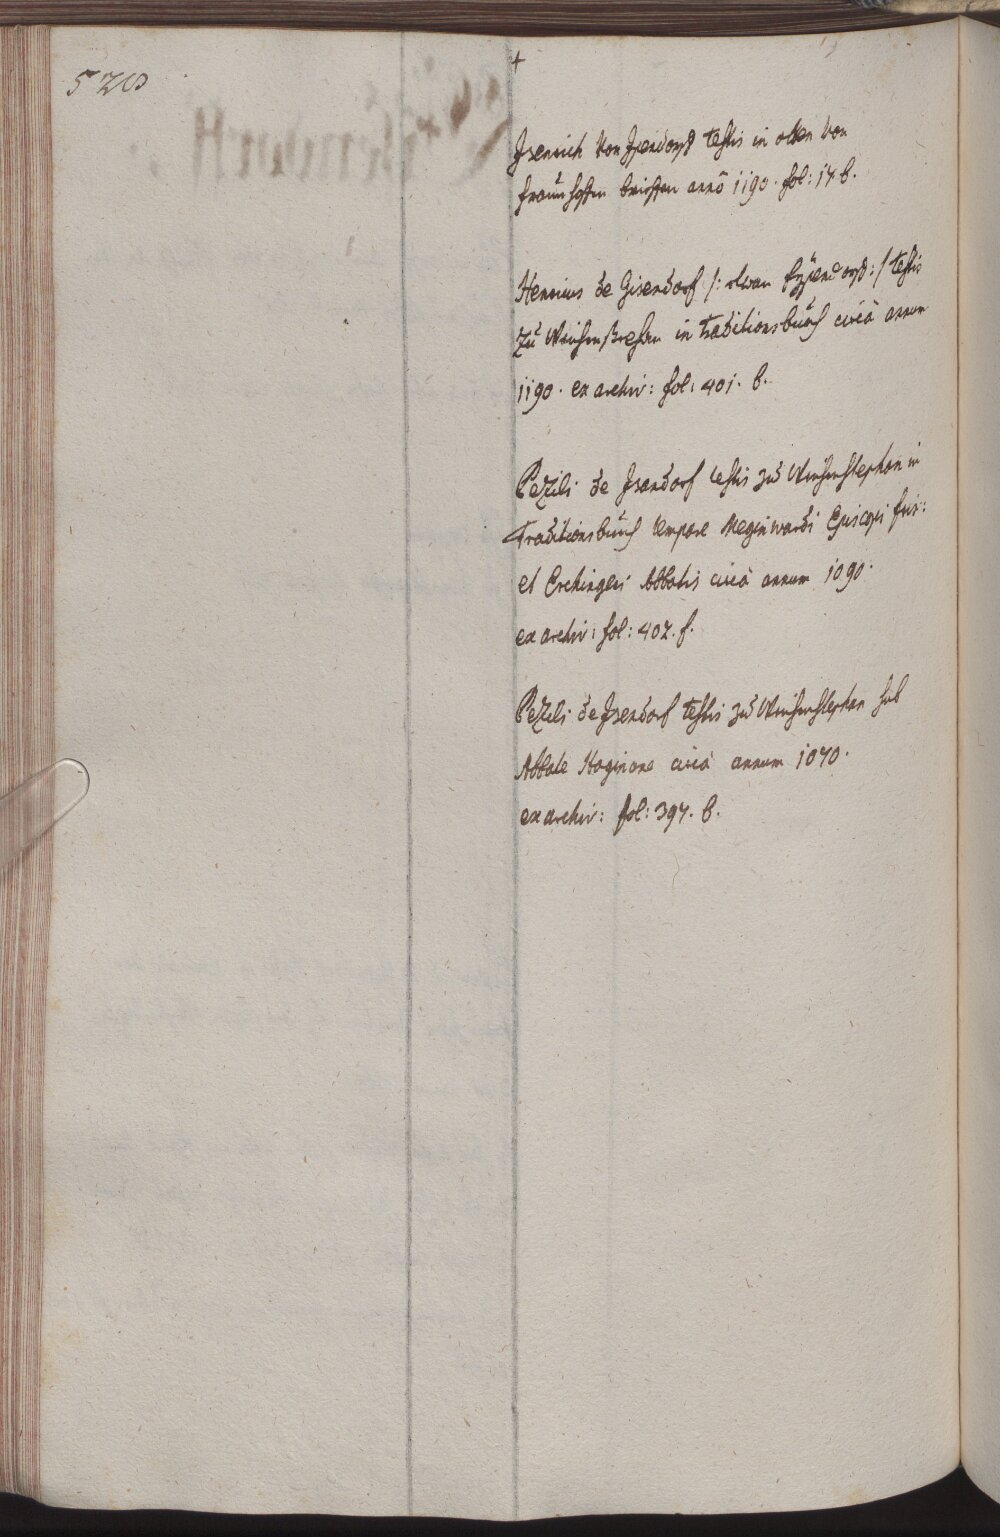 520
+
Isenrich von Isendorff testis in alten von
Fraunhoffen brieffen anno 1190. fol: 17. b.
Henricus de Gisendorf /: etwan Eyßendorff :/ testis
zu Weichenstephan in Traditionsbuch circa annum
1190. ex archiv: fol: 401. b.
Pezili de Isendorf testis zu Weichenstephan in
Traditionsbuch tempore Meginwardi Episcopi fris:
et Erchingeri Abbatis circa annum 1090.
ex archiv: fol: 402. f.
Pezili de Isendorf testis zu Weichenstephan sub
Abbate circa annum 1070.
ex archiv: fol: 397. b.